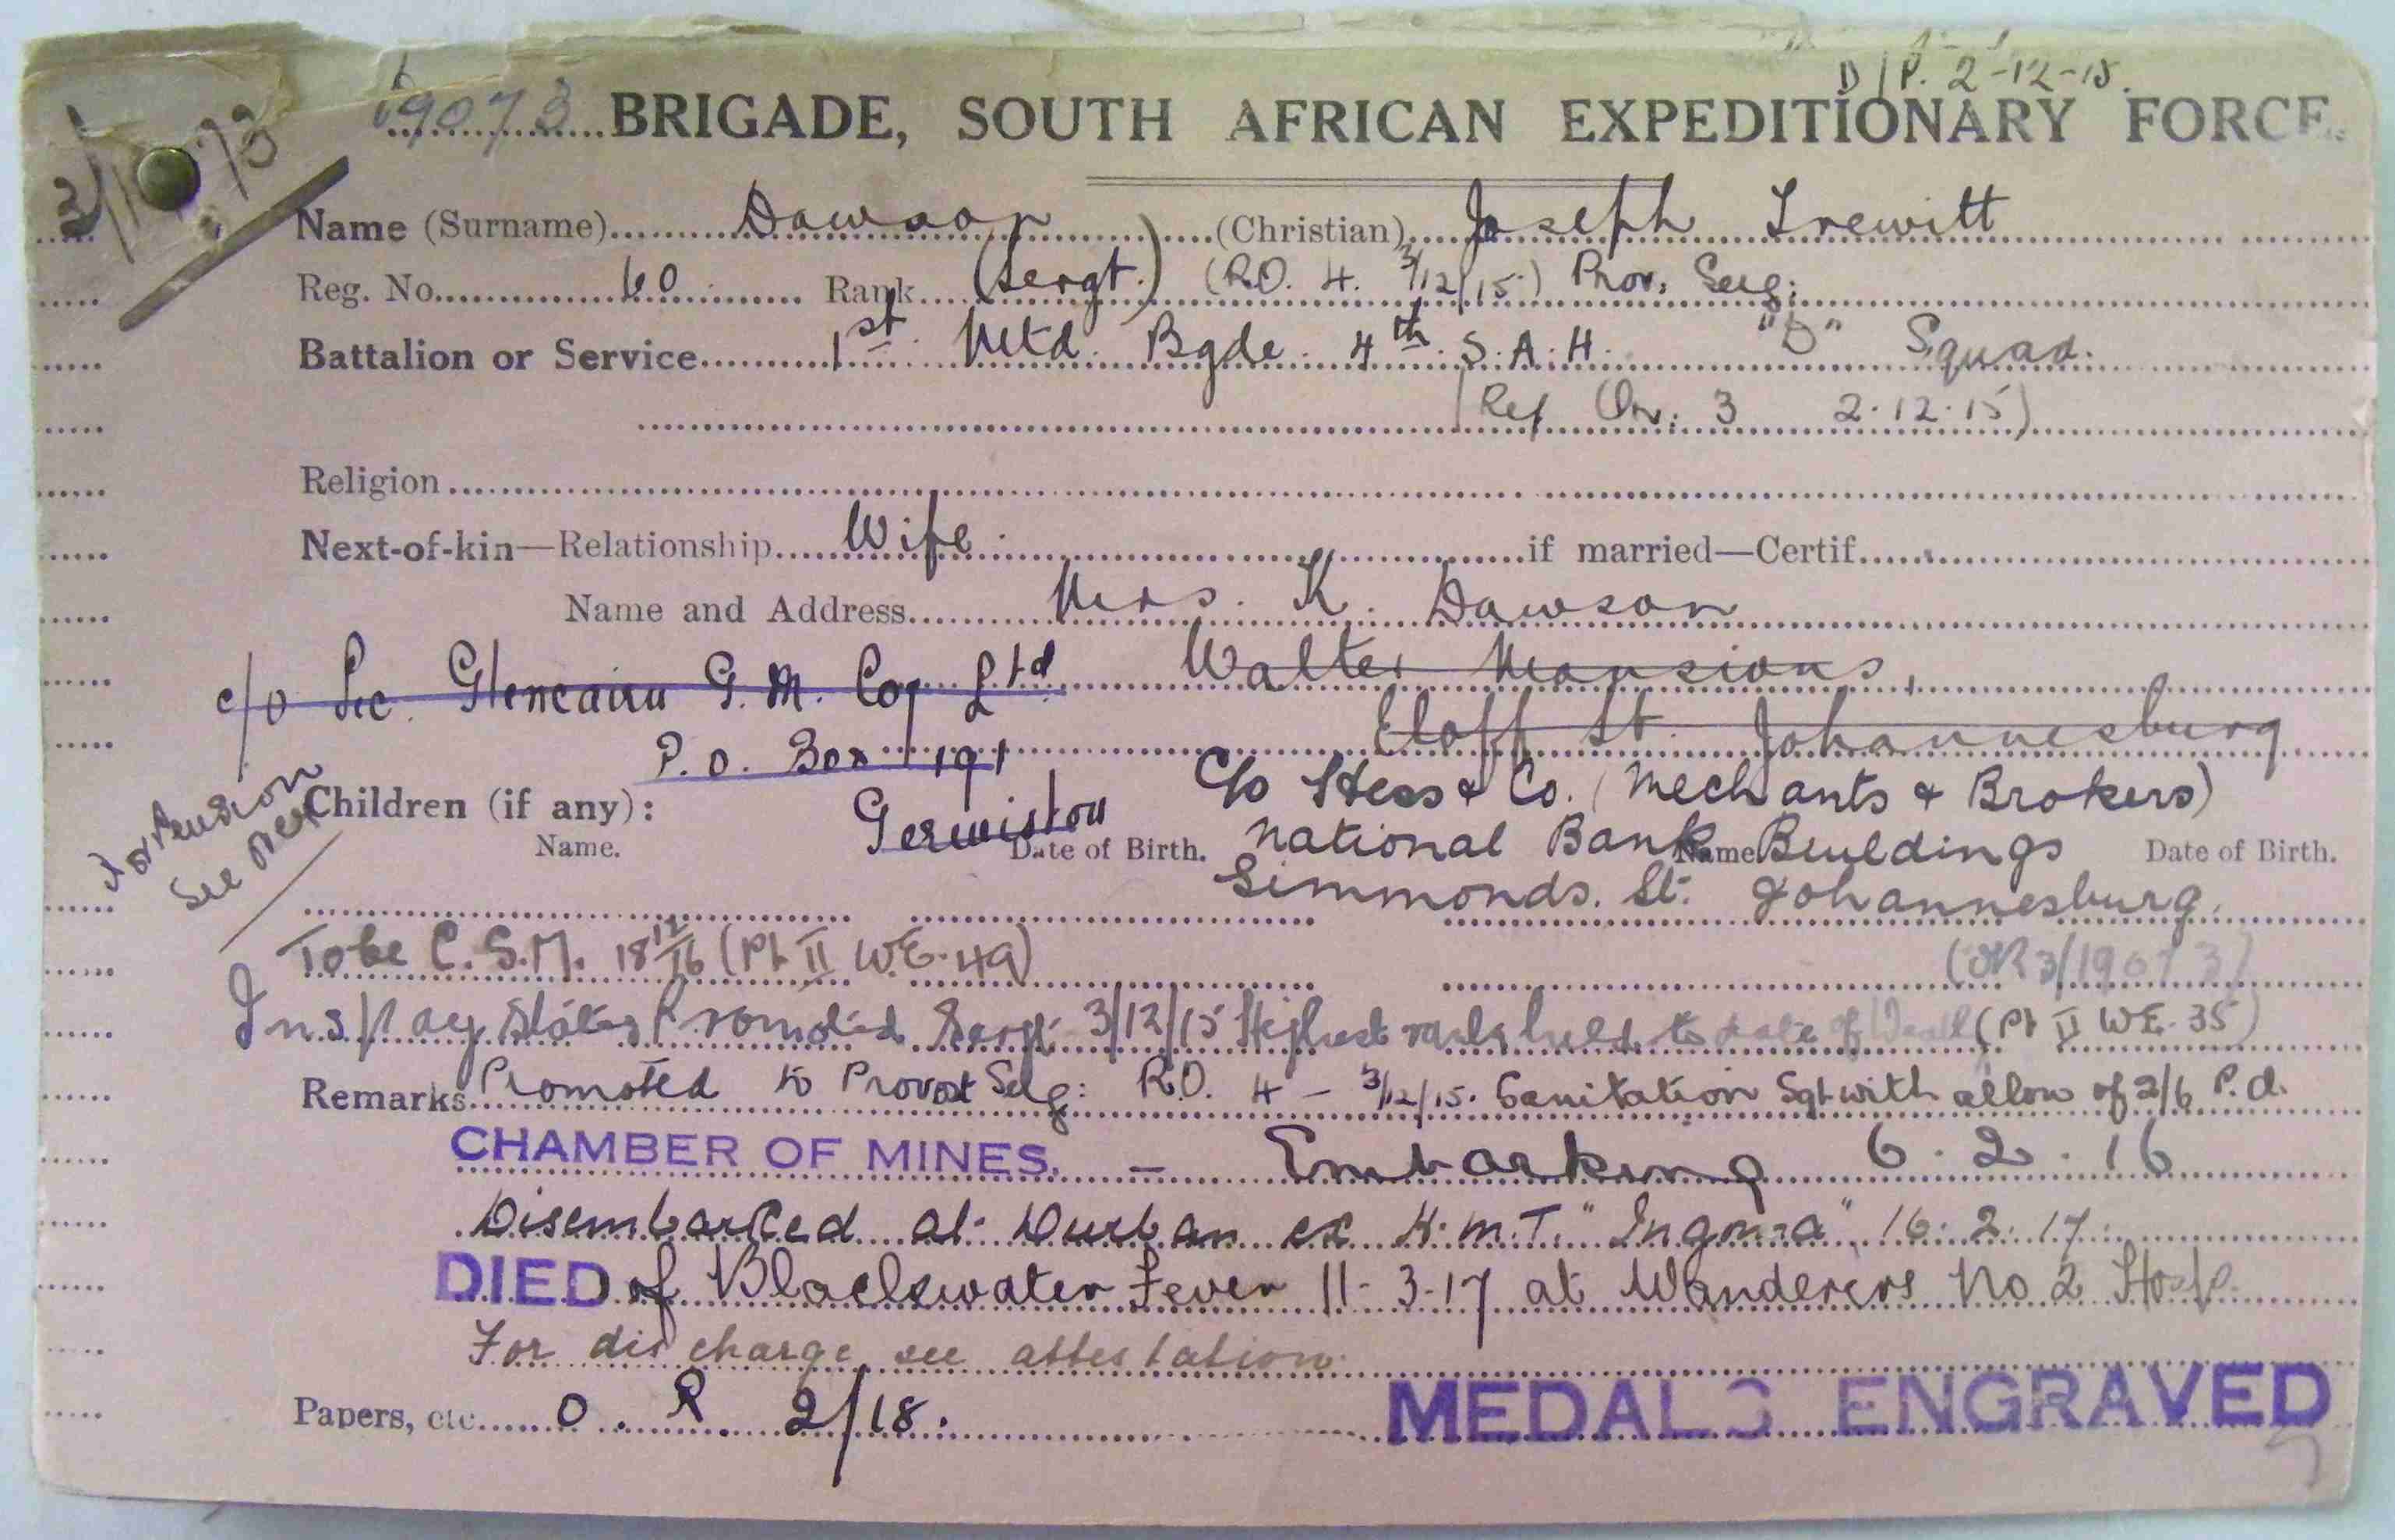 D/P. 2-12-15.
19073 BRIGADE, SOUTH AFRICAN EXPEDITIONARY FORCE.
Name (Surname) Dawson (Christian) Joseph Trewitt
Reg. No. 60 Rank (Sergt.) (R.O. 4. 3/12/15) Prov. Serg:
Battalion or Service 1st Mtd. Bgde. 4th S.A.H. "D" Squad.
(Ref Or: 3 2.12.15)
Religion
Next-of-kin—Relationship Wife. if married—Certif.
Name and Address Mrs. K. Dawson
c/o Sec. Glencairn G.M. Coy Ltd Walter Mansions,
P.O. Box 191 Eloff St. Johannesburg
Germiston c/o Hess & Co. (Mechants & Brokers)
Children (if any):
National Bank Buildings
Name. Date of Birth. Name Date of Birth.
Simmonds. St: Johannesburg.
For Pension
See
To be C.S.M. 18 12/16 (Pt II W.E. 49)
(OR3/19073)
Ins/Pay States Promoted Sergt 3/12/15 Highest rank held to date of Death (Pt II W.E. 35)
Remarks Promoted to Provost Serg: R.O. 4 - 3/12/15. Sanitation Sgt with allow of 2/6 P.d.
CHAMBER OF MINES. — Embarking 6.2.16
Disembarked at Durban ex H.M.T. "Ingoma" 16.2.17.
DIED of Blackwater Fever 11-3-17 at Wanderers No 2 Hosp.
For discharge see attestation.
Papers, etc. O.R 2/18.
MEDALS ENGRAVED